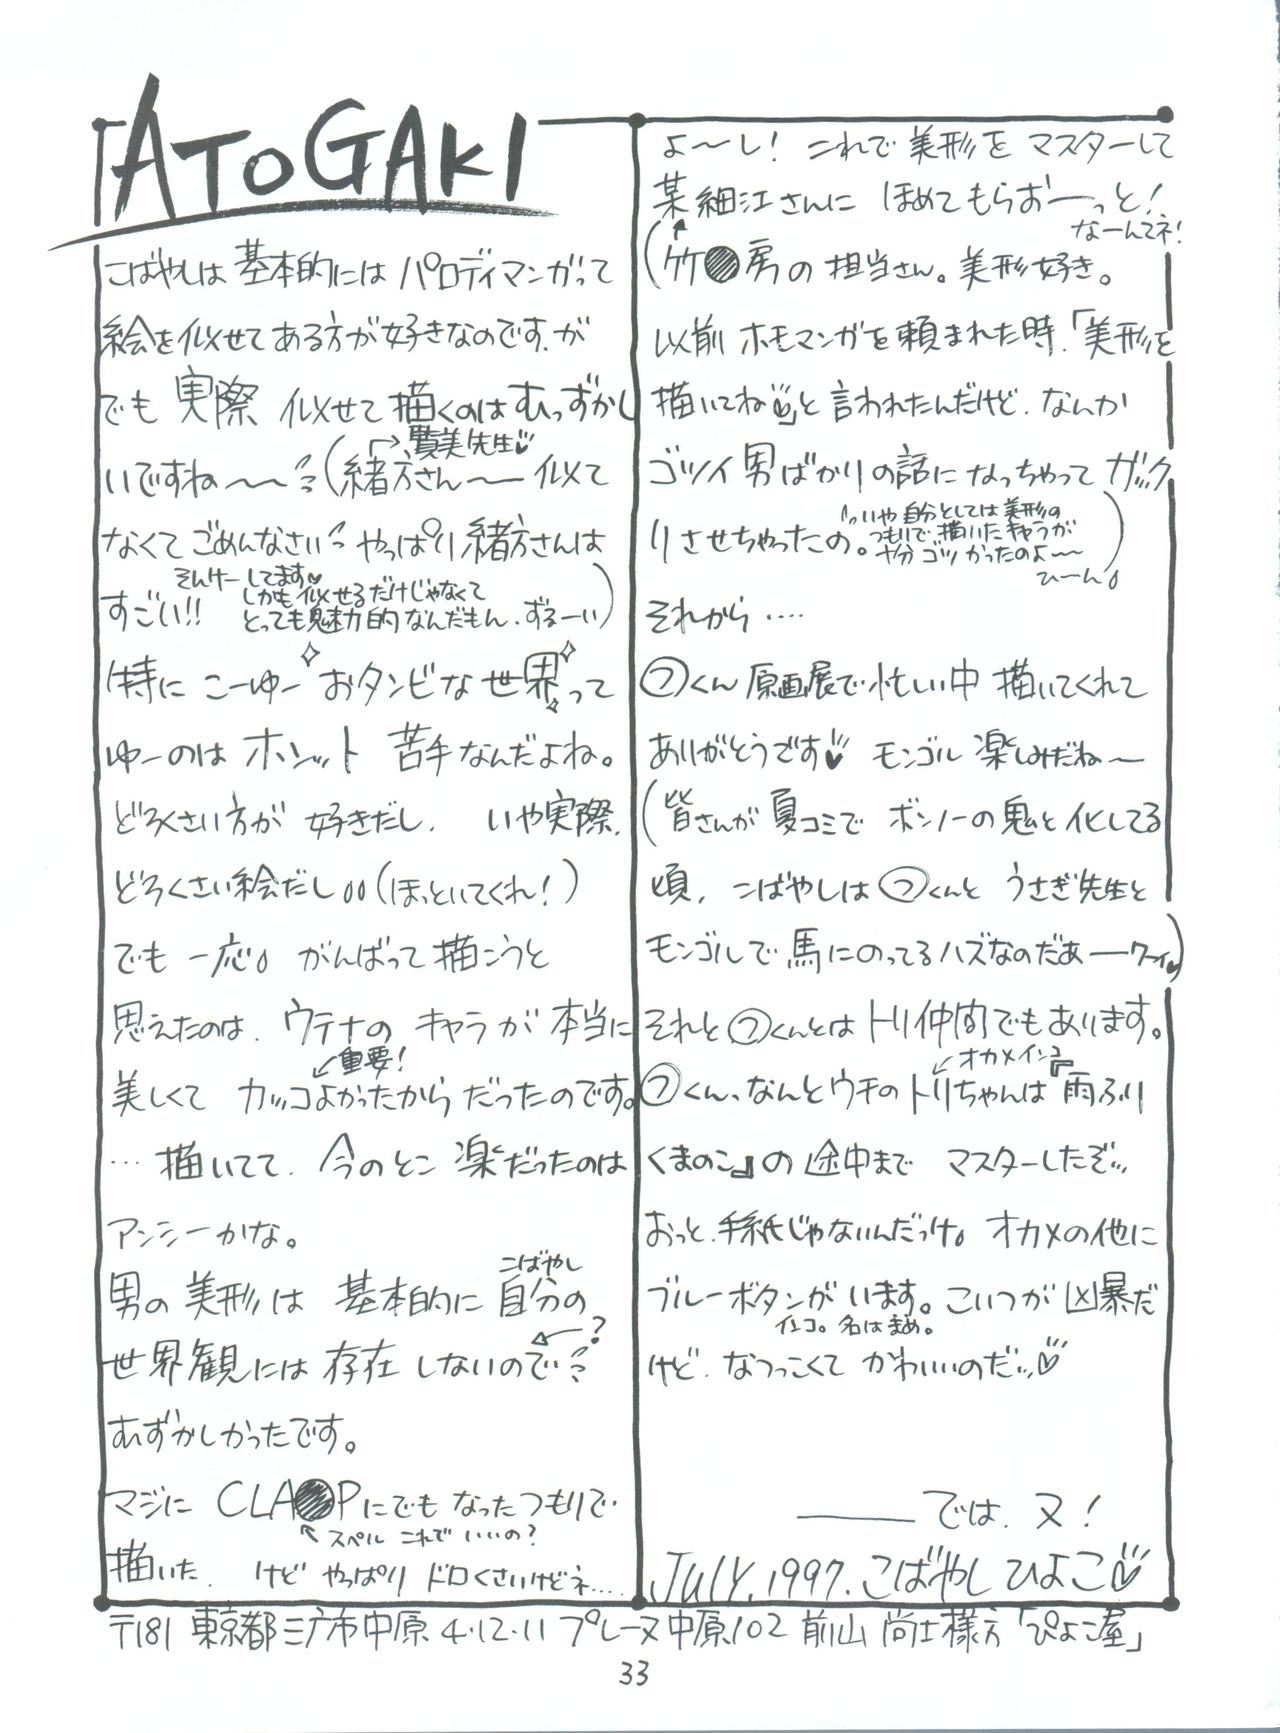 ATOGAKI
こばやしは基本的にはパロディマンガって
絵を似せてある方が好きなのです.が
でも 実際 似せて描くのはむっずかし
いですね〜〜(緒方さん〜似て
→賢美先生♡
なくてごめんなさい やっぱり緒方さんは
すごい!!
そんけーしてます♡
しかも似せるだけじゃなくて
とっても魅力的なんだもん.ずるーい)
特に こーゆー おタンビな世界って
ゆーのは ホンット 苦手なんだよね。
どろくさい方が 好きだし. いや実際.
どろくさい絵だし(ほっといてくれ!)
でも 一応。がんばって描こうと
思えたのは. ウテナの キャラが 本当に
美しくて カッコよかったから だったのです。
重要!
…描いてて. 今のとこ 楽だったのは
アンシーかな。
男の美形は 基本的に 自分の
こばやし
世界観には 存在しないので
?
むずかしかったです。
マジに CLA●Pにでも なったつもりで
スペル これで いいの?
描いた. けど やっぱり ドロくさいけどネ....
よ〜し! これで美形を マスターして
某細江さんに ほめてもらおーっと!
なーんてネ!
(竹●房の担当さん。美形好き。
以前 ホモマンガを頼まれた時.「美形を
描いてね♡」と言われたんだけど. なんか
ゴツイ男ばかりの話になっちゃって ガック
リさせちゃったの。
いや自分としては美形の
つもりで描いたキャラが
やたゴツかったのよ〜〜
ひーん。)
それから ....
㋫くん 原画展で忙しい中 描いてくれて
ありがとうです♡ モンゴル 楽しみだね〜
(皆さんが 夏コミで ボンノーの鬼と化してる
頃. こばやしは㋫くんと うさぎ先生と
モンゴルで 馬にのってるハズなのだあーワーイ♡)
それと㋫くんとは トリ仲間でもあります。
オカメインコ
㋫くん、なんとウチの トリちゃんは『雨ふり
くまのこ』の 途中まで マスターしたぞ…
おっと.手紙じゃないんだっけ。オカメの他に
ブルーボタンが います。こいつが 凶暴だ
インコ。名はまめ。
けど. なつっこくて かわいいのだ…♡
――では. 又!
JULY.1997.こばやしひよこ♡
〒181 東京都三鷹市中原 4-12-11 プレーヌ中原102 前山 尚士様方「ぴよこ屋」
33